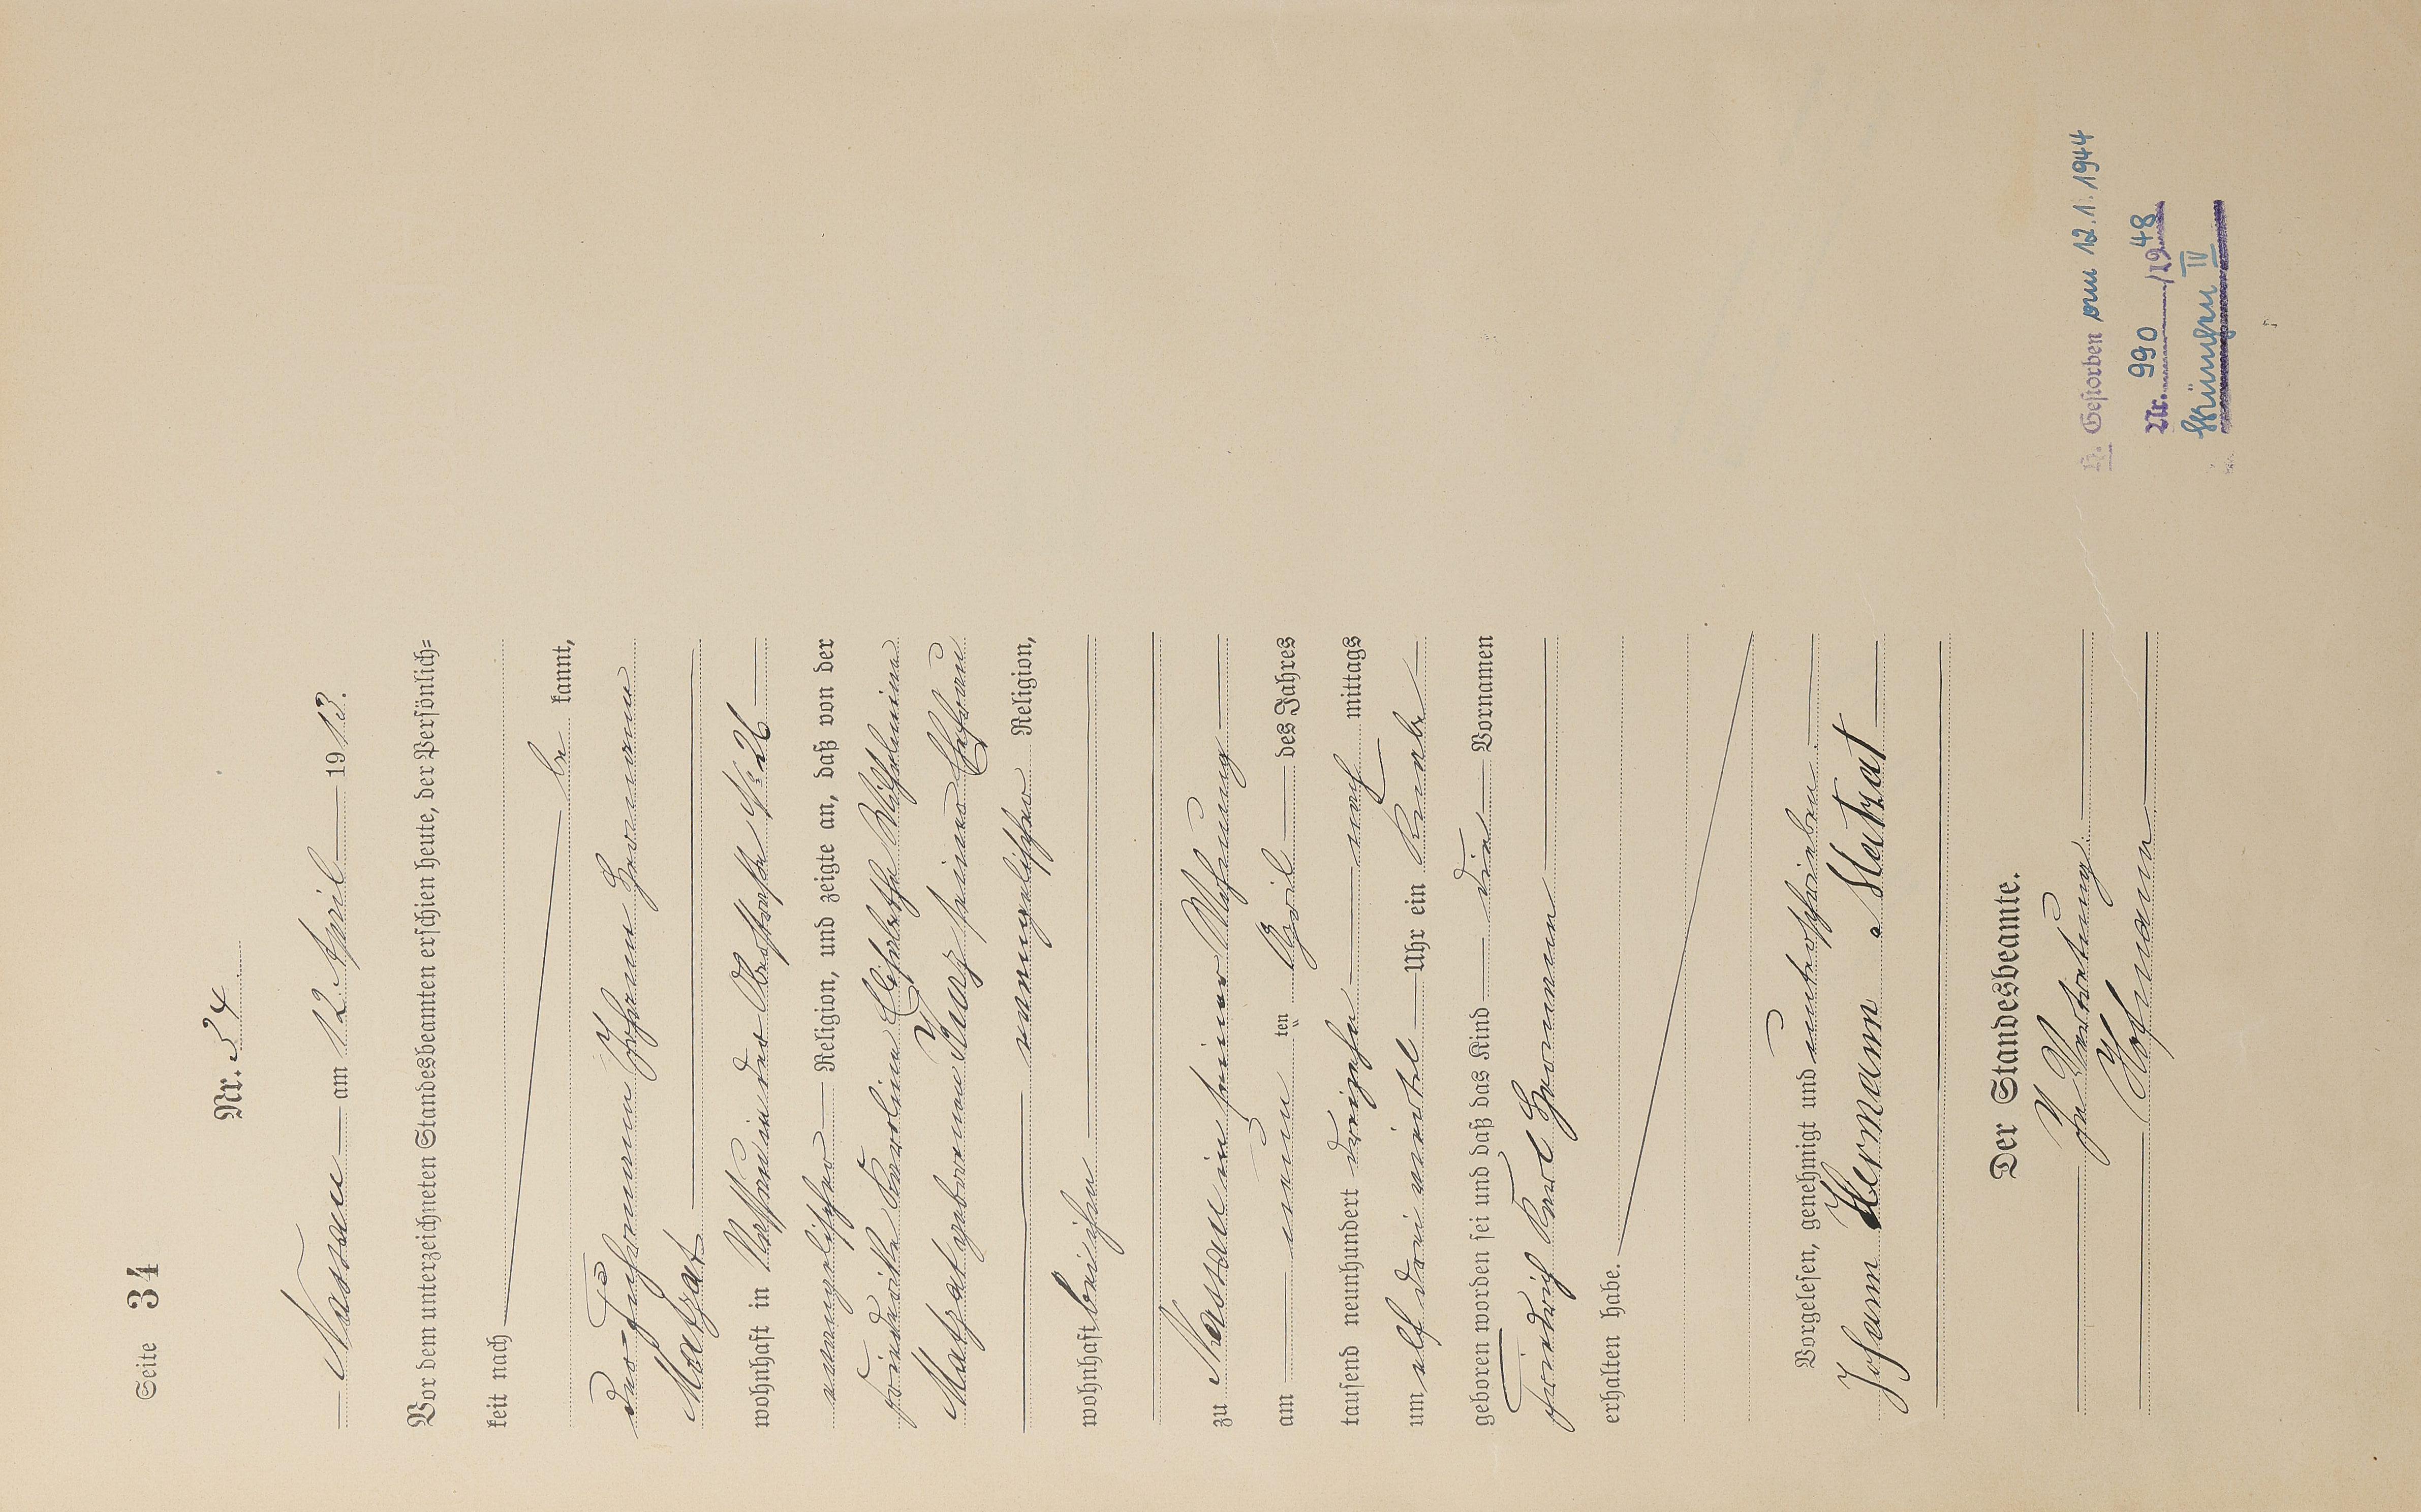 Seite 34
Nr. 34
Nassau am 12 April 1913.
Vor dem unterzeichneten Standesbeamten erschien heute, der Persönlich=
keit nach
be kannt,
der Fuhrmann Johann Hermann
Matzat
wohnhaft in Nassau in der Nr. 26
evangelischer Religion, und zeigte an, daß von der
Karoline Elisabethe Wilhelmine
Matzat geborenen Kurz seiner Ehefrau
evangelischer Religion,
wohnhaft bei ihm
zu Nassau in seiner Wohnung
am neun ten April des Jahres
tausend neunhundert dreizehn nach mittags
um elf drei viertel Uhr ein Knabe
geboren worden sei und daß das Kind die Vornamen
Friedrich Karl Hermann
erhalten habe.
Vorgelesen, genehmigt und unterschrieben
Johann Hermann Matzat
Der Standesbeamte.
In Vertretung
Hofmann
H. Gestorben am 12.1.1944
Nr. 990 /1948
München IV